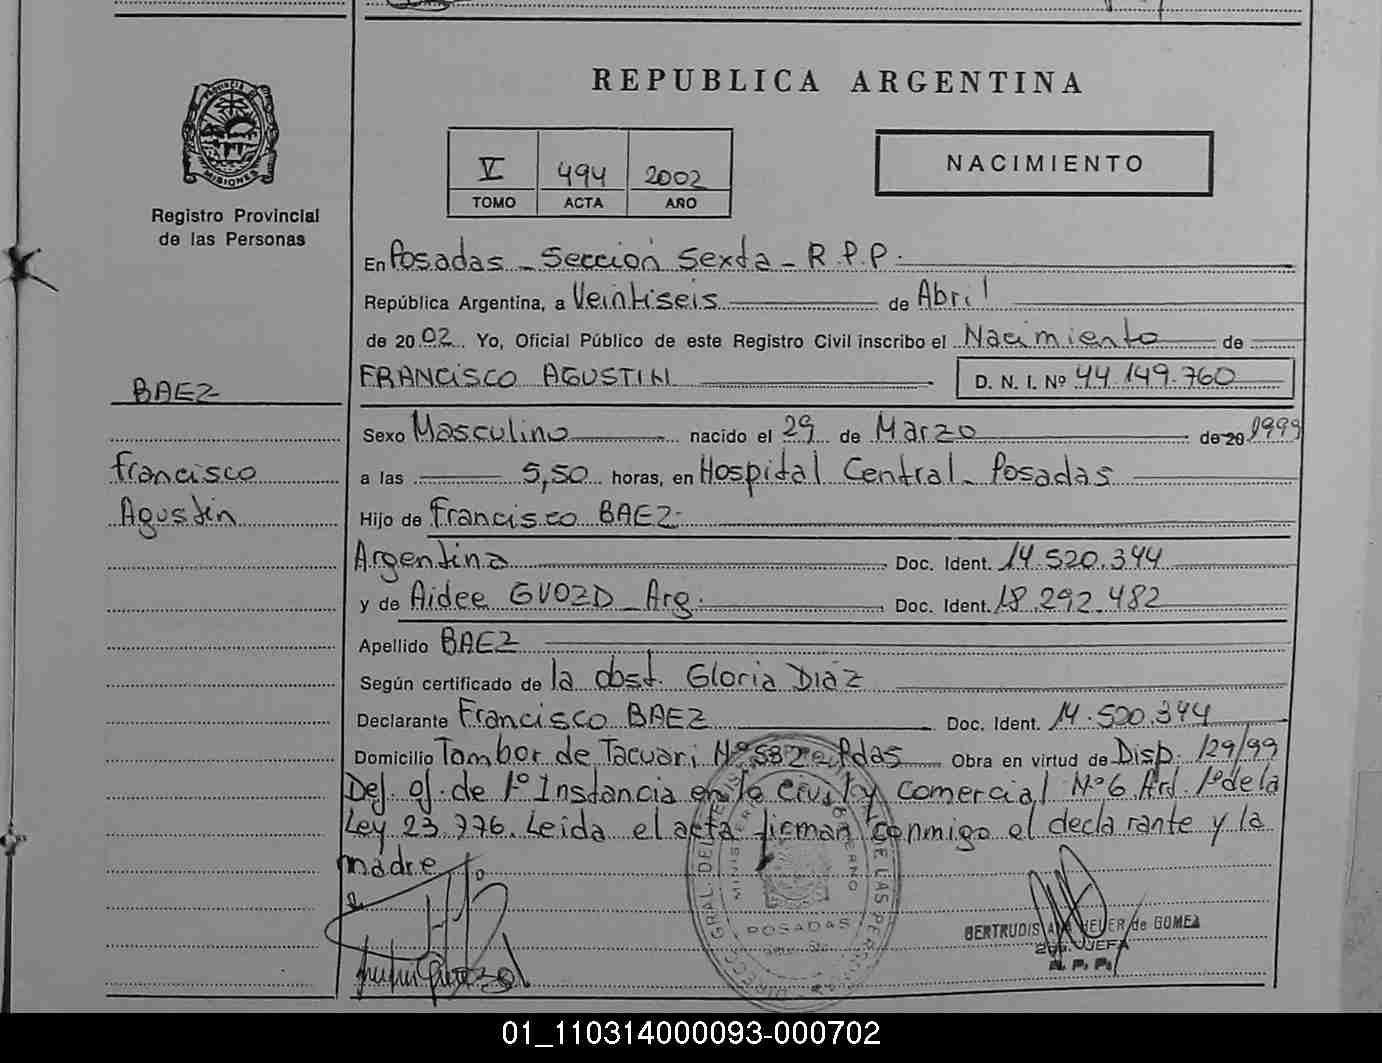 REPUBLICA ARGENTINA
PROVINCIA DE
MISIONES
Registro Provincial
de las Personas
V 494 2002
TOMO ACTA AÑO
NACIMIENTO
En Posadas - Sección Sexta - R.P.P.
República Argentina, a Veintiseis de Abril
de 2002 Yo, Oficial Público de este Registro Civil inscribo el Nacimiento de
BAEZ
Francisco
Agustin
FRANCISCO AGUSTIN D. N. I. Nº 44.149.760
Sexo Masculino nacido el 29 de Marzo de 20 1999
a las 5,50 horas, en Hospital Central - Posadas
Hijo de Francisco BAEZ
Argentina Doc. Ident. 14.520.344
y de Aidee GVOZD - Arg. Doc. Ident. 18.292.482
Apellido BAEZ
Según certificado de la obst. Gloria Diaz
Declarante Francisco BAEZ Doc. Ident. 14.520.344
Domicilio Tambor de Tacuari Nº 5822 Pdas Obra en virtud de Disp. 129/99
Def. of. de 1º Instancia en lo Civil y Comercial Nº 6 Art. 1º de la
Ley 23.776. Leida el acta firman conmigo el declarante y la
madre
POSADAS
GERTRUDIS HEUER de GOMEZ
JEFA
R. P. P.
01_110314000093-000702